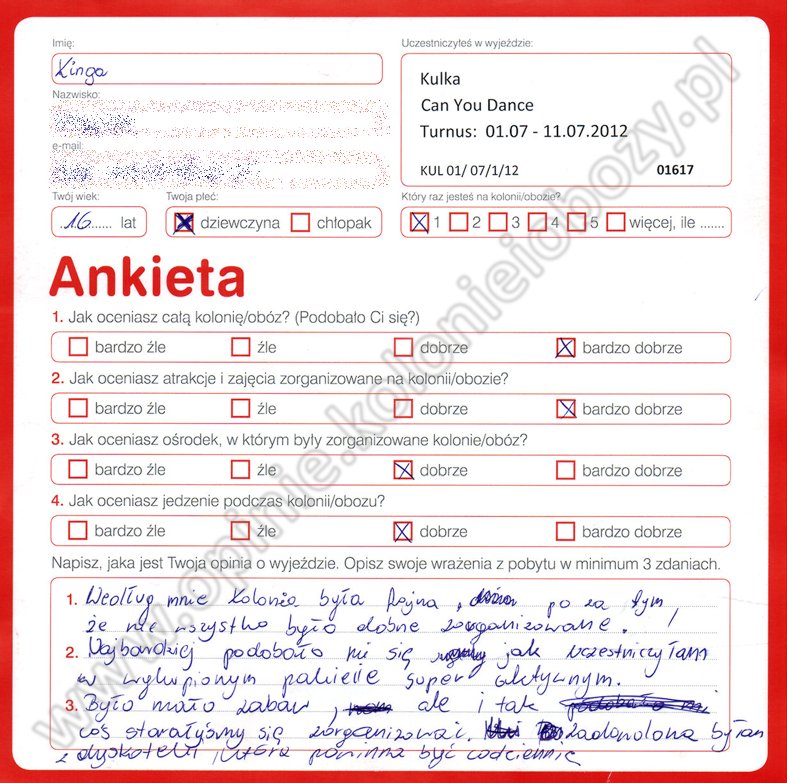 Imię:
Kinga
Nazwisko:
e-mail:
Twój wiek:
16 lat
Twoja płeć:
dziewczyna chłopak
Uczestniczyłeś w wyjeździe:
Kulka
Can You Dance
Turnus: 01.07 - 11.07.2012
KUL 01/ 07/1/12 01617
Który raz jesteś na kolonii/obozie?
1 2 3 4 5 więcej, ile .......
Ankieta
1. Jak oceniasz całą kolonię/obóz? (Podobało Ci się?)
bardzo źle źle dobrze bardzo dobrze
2. Jak oceniasz atrakcje i zajęcia zorganizowane na kolonii/obozie?
bardzo źle źle dobrze bardzo dobrze
3. Jak oceniasz ośrodek, w którym były zorganizowane kolonie/obóz?
bardzo źle źle dobrze bardzo dobrze
4. Jak oceniasz jedzenie podczas kolonii/obozu?
bardzo źle źle dobrze bardzo dobrze
Napisz, jaka jest Twoja opinia o wyjeździe. Opisz swoje wrażenia z pobytu w minimum 3 zdaniach.
1. Według mnie kolonia była fajna, po za tym,
że nie wszystko było dobrze zorganizowane.
2. Najbardziej podobało mi się jak uczestniczyłam
w wykupionym pakiecie super aktywnym.
3. Było mało zabaw, ale i tak
coś starałyśmy się zorganizować. zadowolona byłam
z dyskotek, która powinna być codziennie
www.opinie.kolonieiobozy.pl